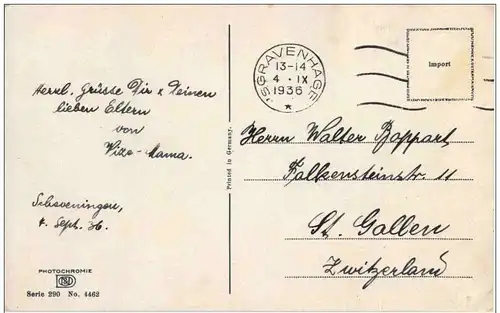 Herzl. Grüsse Dir & Deinen
lieben Eltern
von
Wizo-Mama.
Scheveningen,
4. Sept. 36.
PHOTOCHROMIE
Serie 290 No. 4462
Printed in Germany.
'SGRAVENHAGE
13-14
4 · IX
1936
import
Herrn Walter Boppart
Falkensteinstr. 11
St. Gallen
Zwitzerland